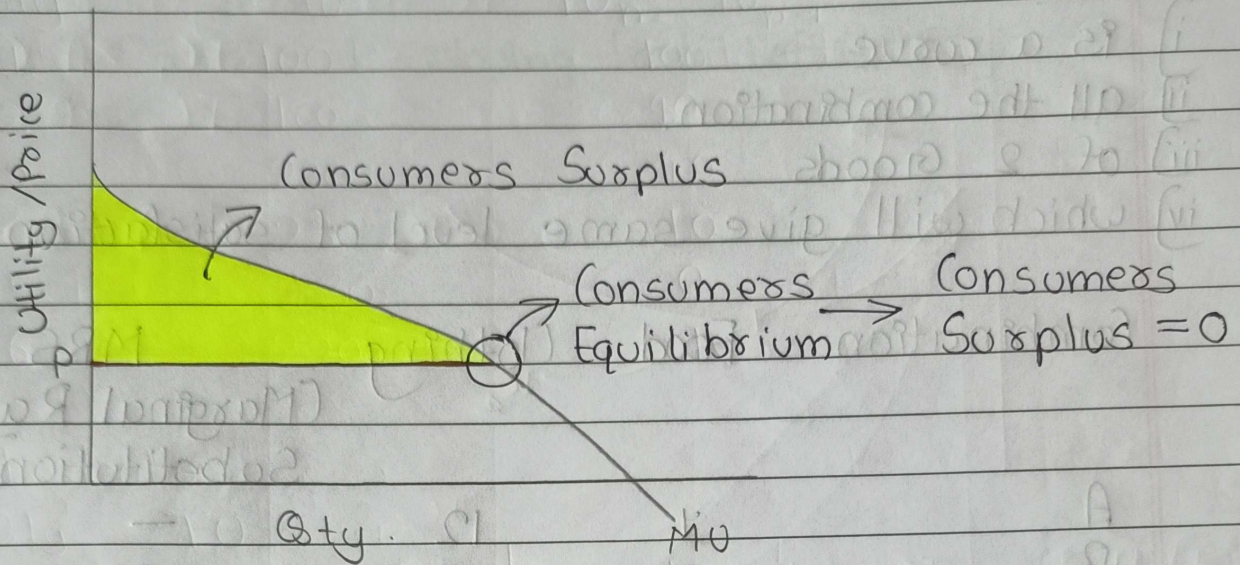 Utility/Price
Consumers Surplus
Consumers
Equilibrium
→
Consumers
Surplus = 0
P
Qty.
MU